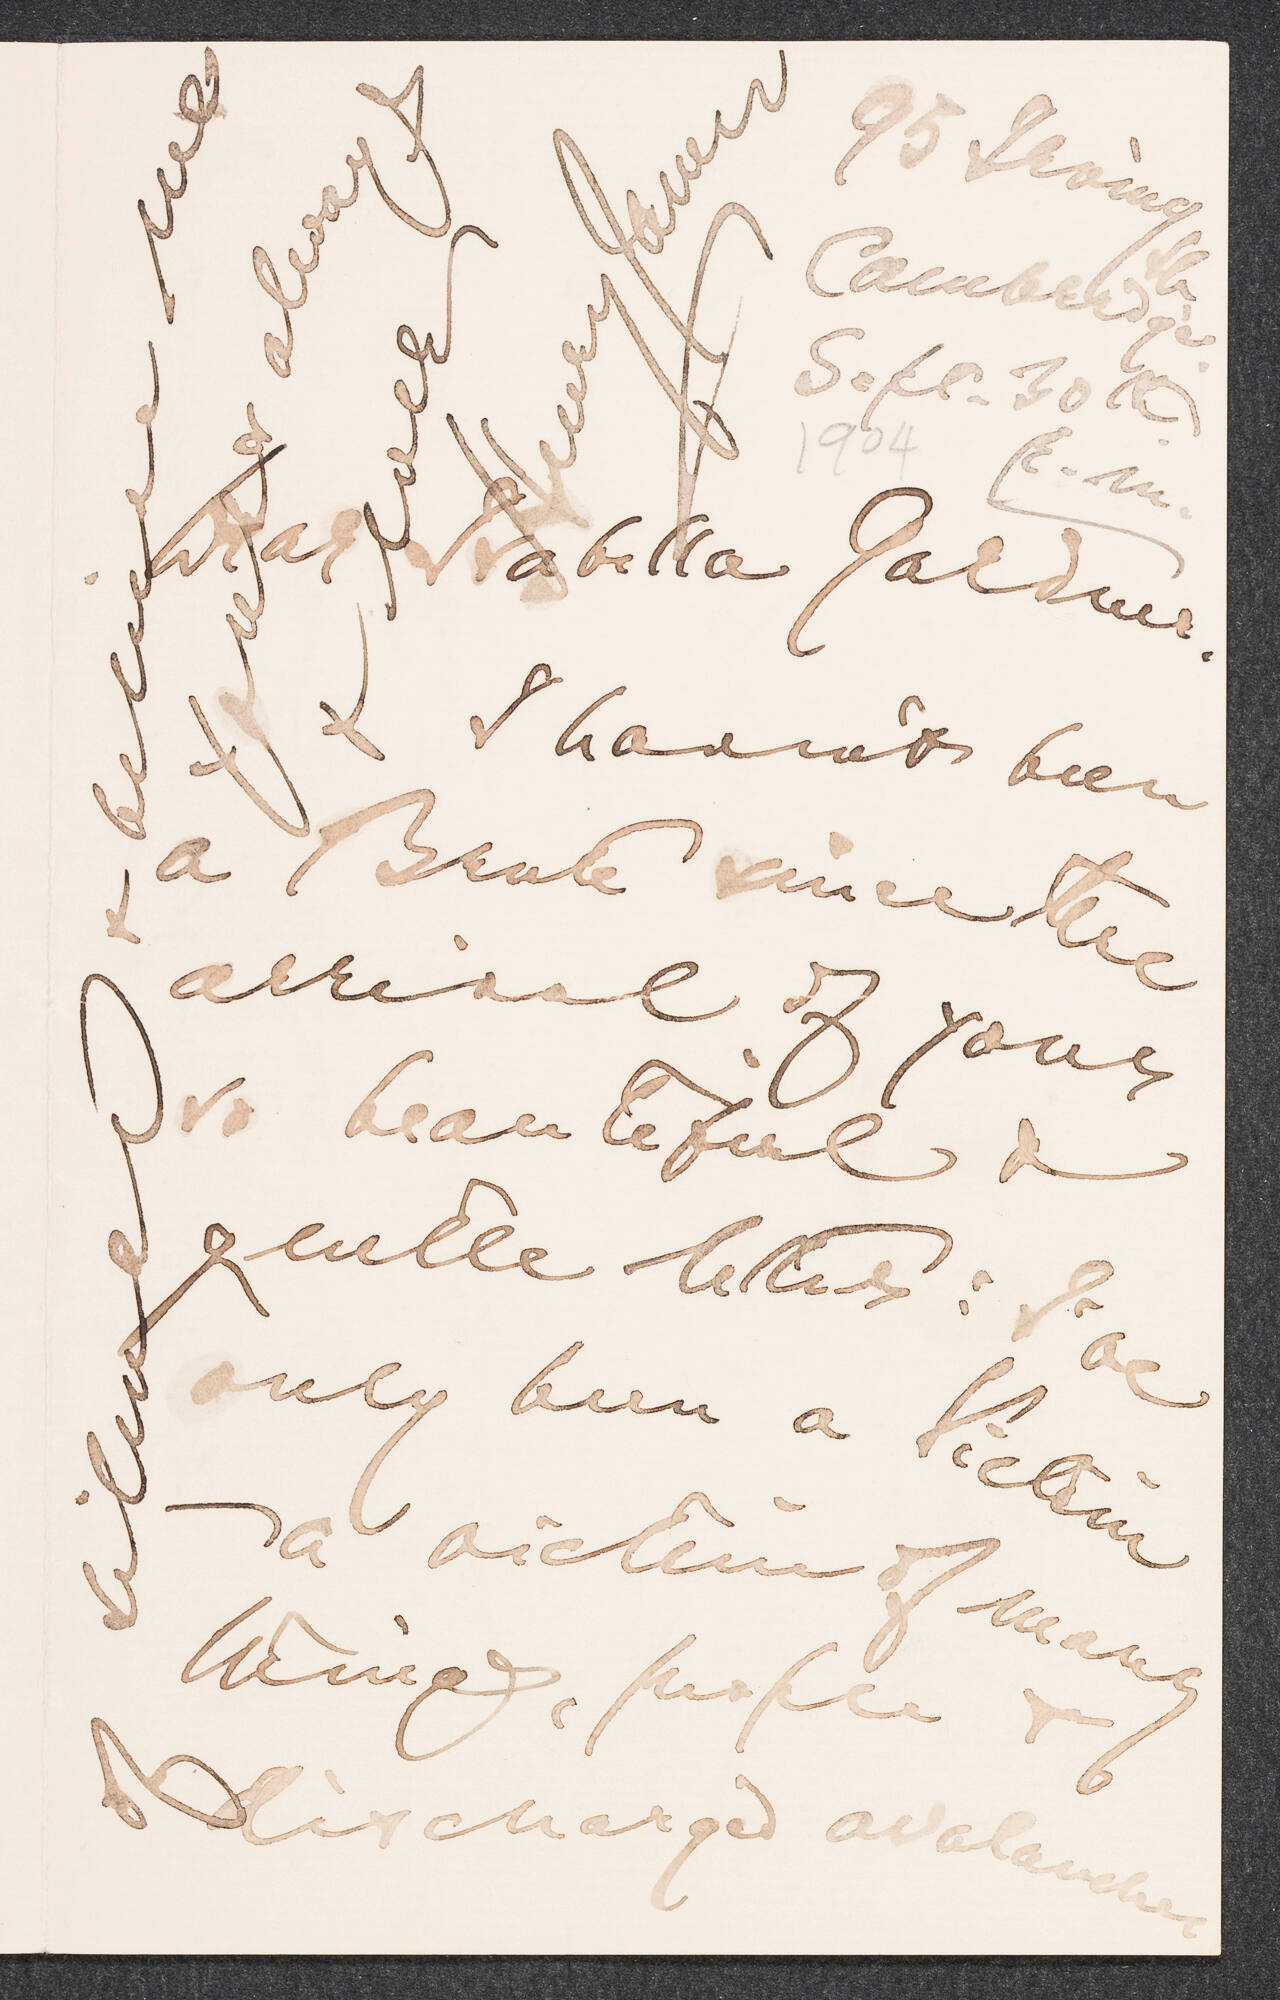 95 Irving St.
Cambridge.
Sept. 30th.
1904
p.m.
Dear Isabella Gardner.
I haven't been
a Brute since the
arrival of your
so beautiful &
gentle letter: I've
only been a Victim
— a victim of many
things, people &
of discharged avalanches
& believe me
always
& ever
Henry James